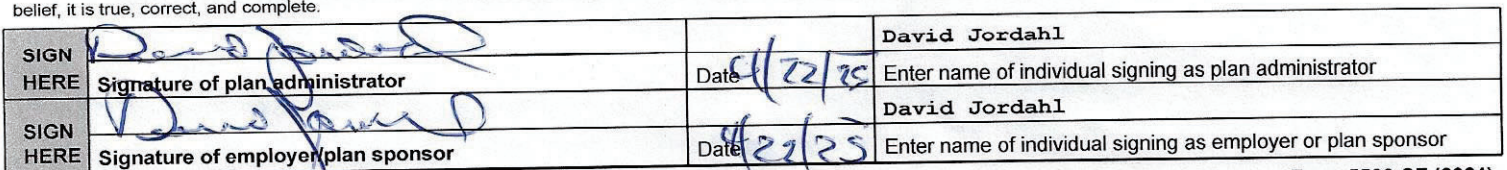 belief, it is true, correct, and complete.
SIGN HERE
David Jordahl
Signature of plan administrator Date 4/22/25 Enter name of individual signing as plan administrator
SIGN HERE
David Jordahl
Signature of employer/plan sponsor Date 4/22/25 Enter name of individual signing as employer or plan sponsor